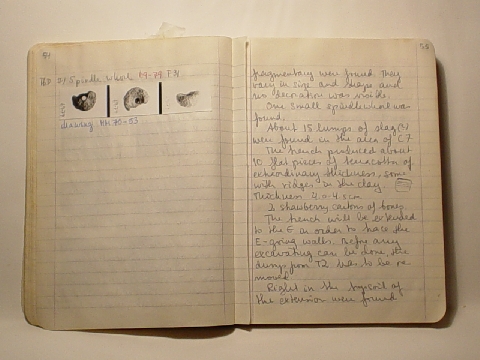 54
21 Spindle Whorl
drawing:
55
fragmentary were found. They
vary in size and shape and
no decoration was visible.
One small spindle whorl was
found.
About 15 lumps of slag (?)
were found in the area of C7.
The trench produced about
10 flat pieces of terracotta of
extraordinary thickness, some
with ridges in the clay.
Thickness 4.0-4.5 cm
2 strawberry cartons of bones
The trench will be extended
to the E in order to trace the
E-going walls. Before any
excavating can be done, the
dump from T2 has to be re
moved.
Right in the topsoil of
the extension were found